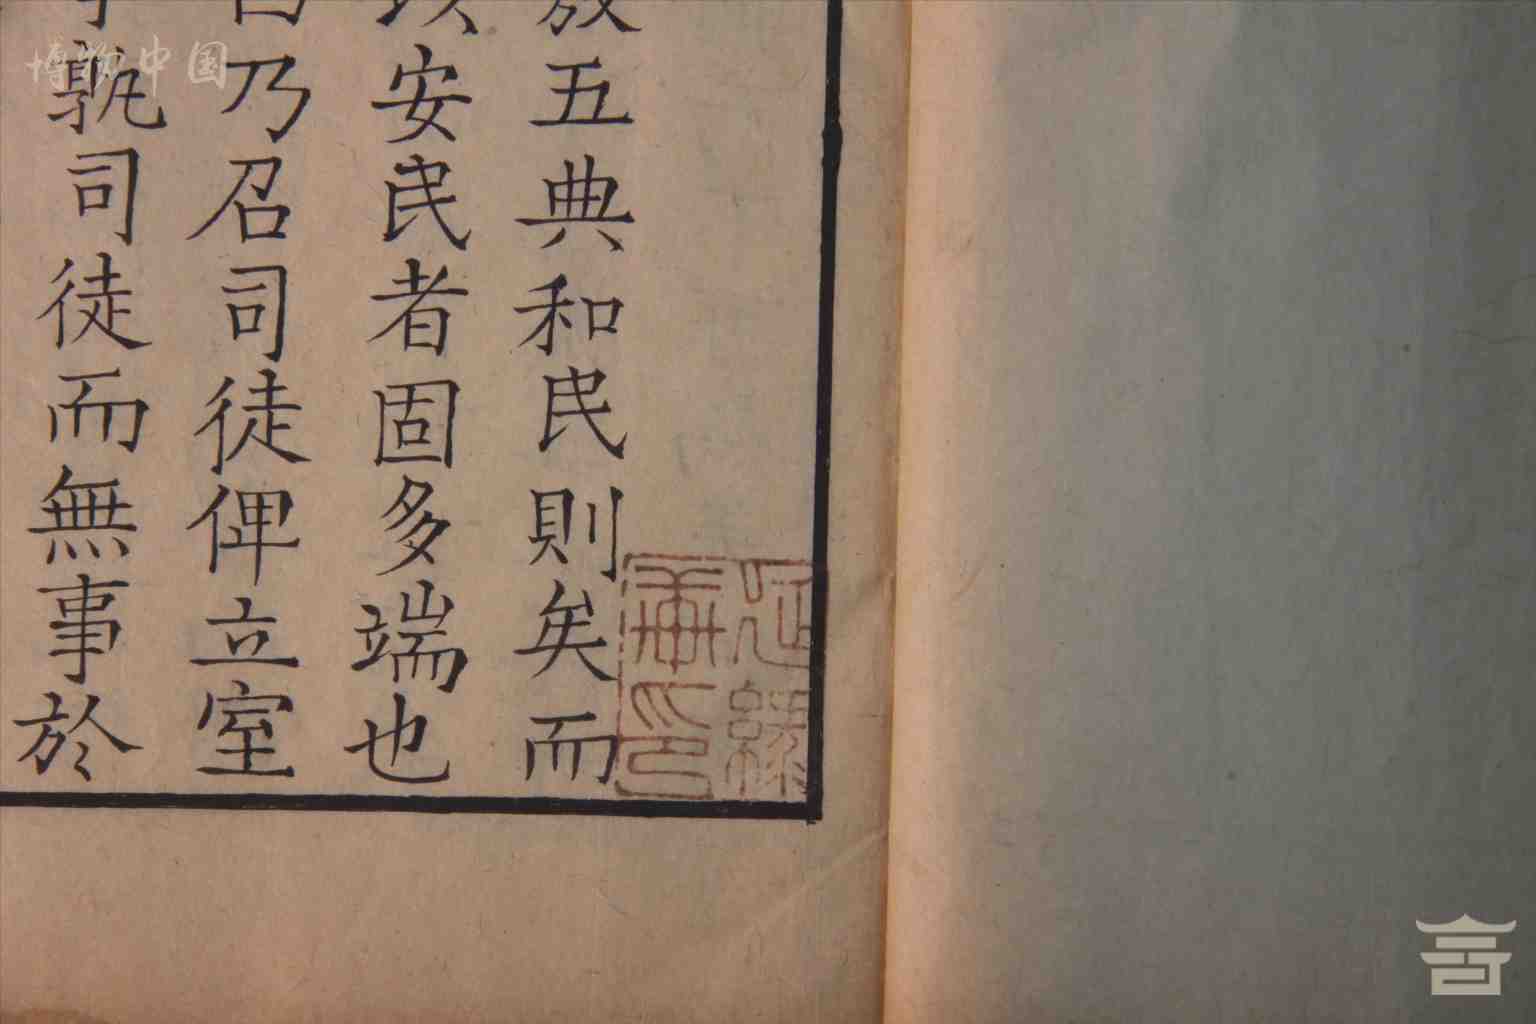 五典和民則矣而
安民者固多端也
乃召司徒俾立室
孰司徒而無事於
博物中国